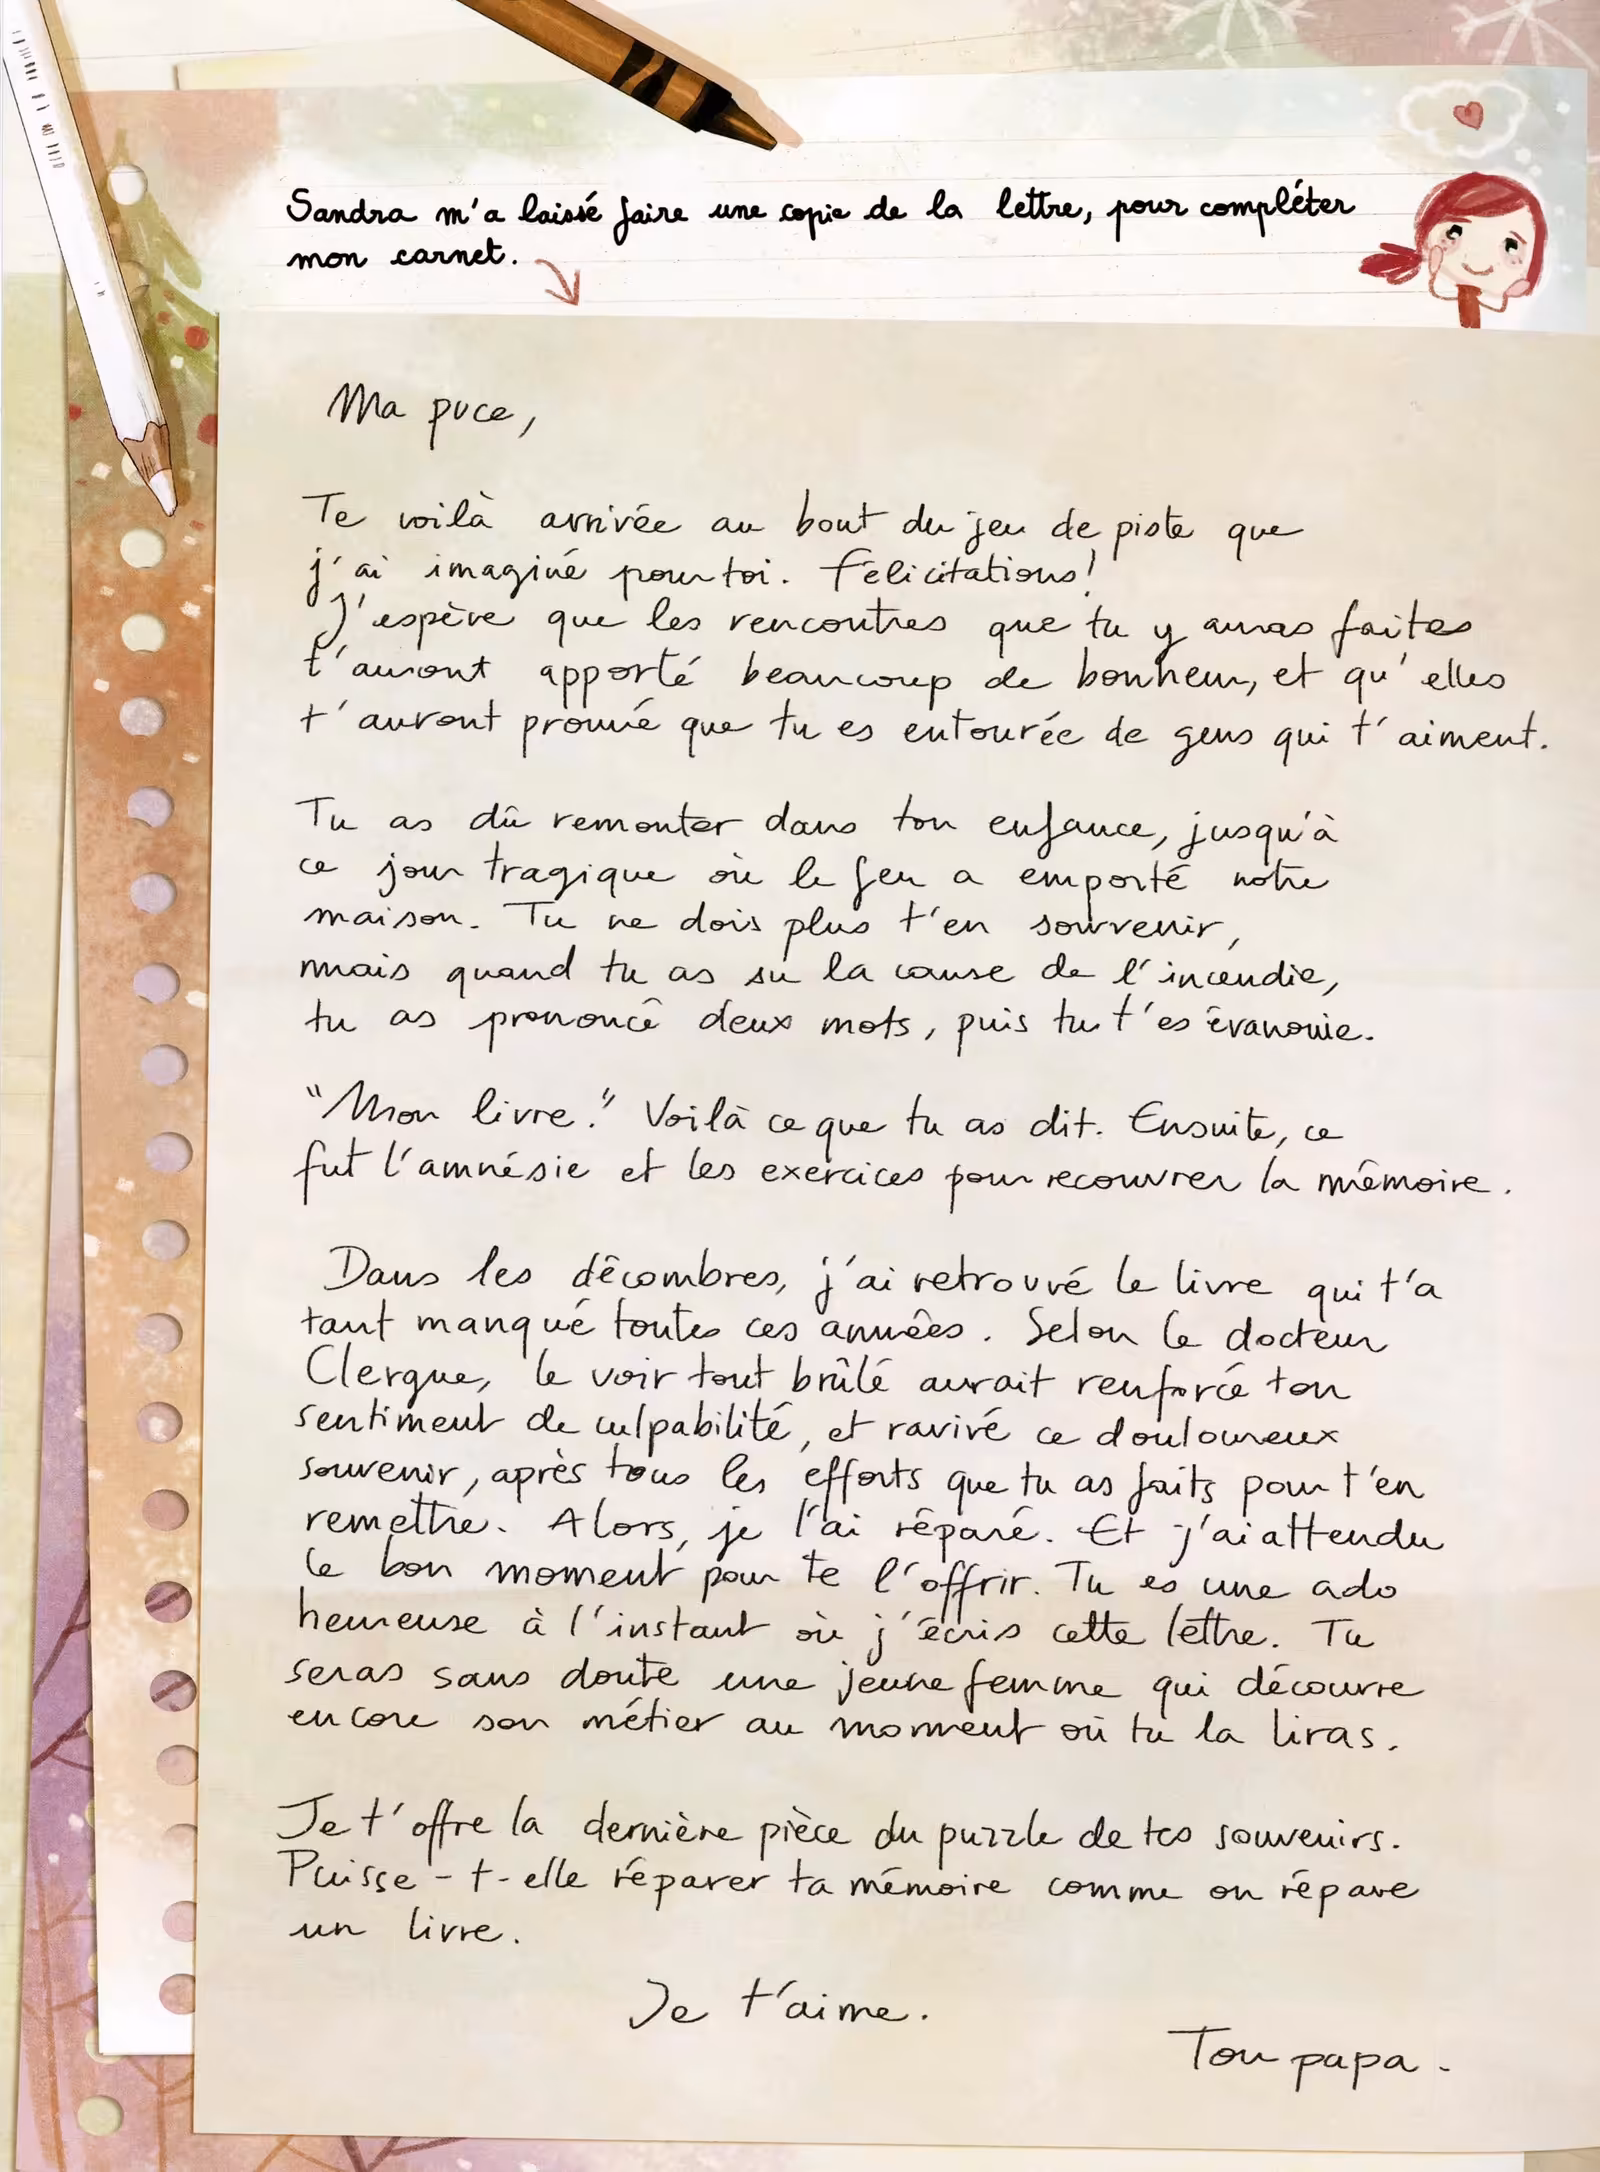 Sandra m'a laissé faire une copie de la lettre, pour compléter
mon carnet.
Ma puce,
Te voilà arrivée au bout du jeu de piste que
j'ai imaginé pour toi. Félicitations!
J'espère que les rencontres que tu y auras faites
t'auront apporté beaucoup de bonheur, et qu'elles
t'auront prouvé que tu es entourée de gens qui t'aiment.
Tu as dû remonter dans ton enfance, jusqu'à
ce jour tragique où le feu a emporté notre
maison. Tu ne dois plus t'en souvenir,
mais quand tu as su la cause de l'incendie,
tu as prononcé deux mots, puis tu t'es évanouie.
"Mon livre." Voilà ce que tu as dit. Ensuite, ce
fut l'amnésie et les exercices pour recouvrer la mémoire.
Dans les décombres, j'ai retrouvé le livre qui t'a
tant manqué toutes ces années. Selon le docteur
Clergue, le voir tout brûlé aurait renforcé ton
sentiment de culpabilité, et ravivé ce douloureux
souvenir, après tous les efforts que tu as faits pour t'en
remettre. Alors, je l'ai réparé. Et j'ai attendu
le bon moment pour te l'offrir. Tu es une ado
heureuse à l'instant où j'écris cette lettre. Tu
seras sans doute une jeune femme qui découvre
encore son métier au moment où tu la liras.
Je t'offre la dernière pièce du puzzle de tes souvenirs.
Puisse-t-elle réparer ta mémoire comme on répare
un livre.
Je t'aime.
Ton papa.